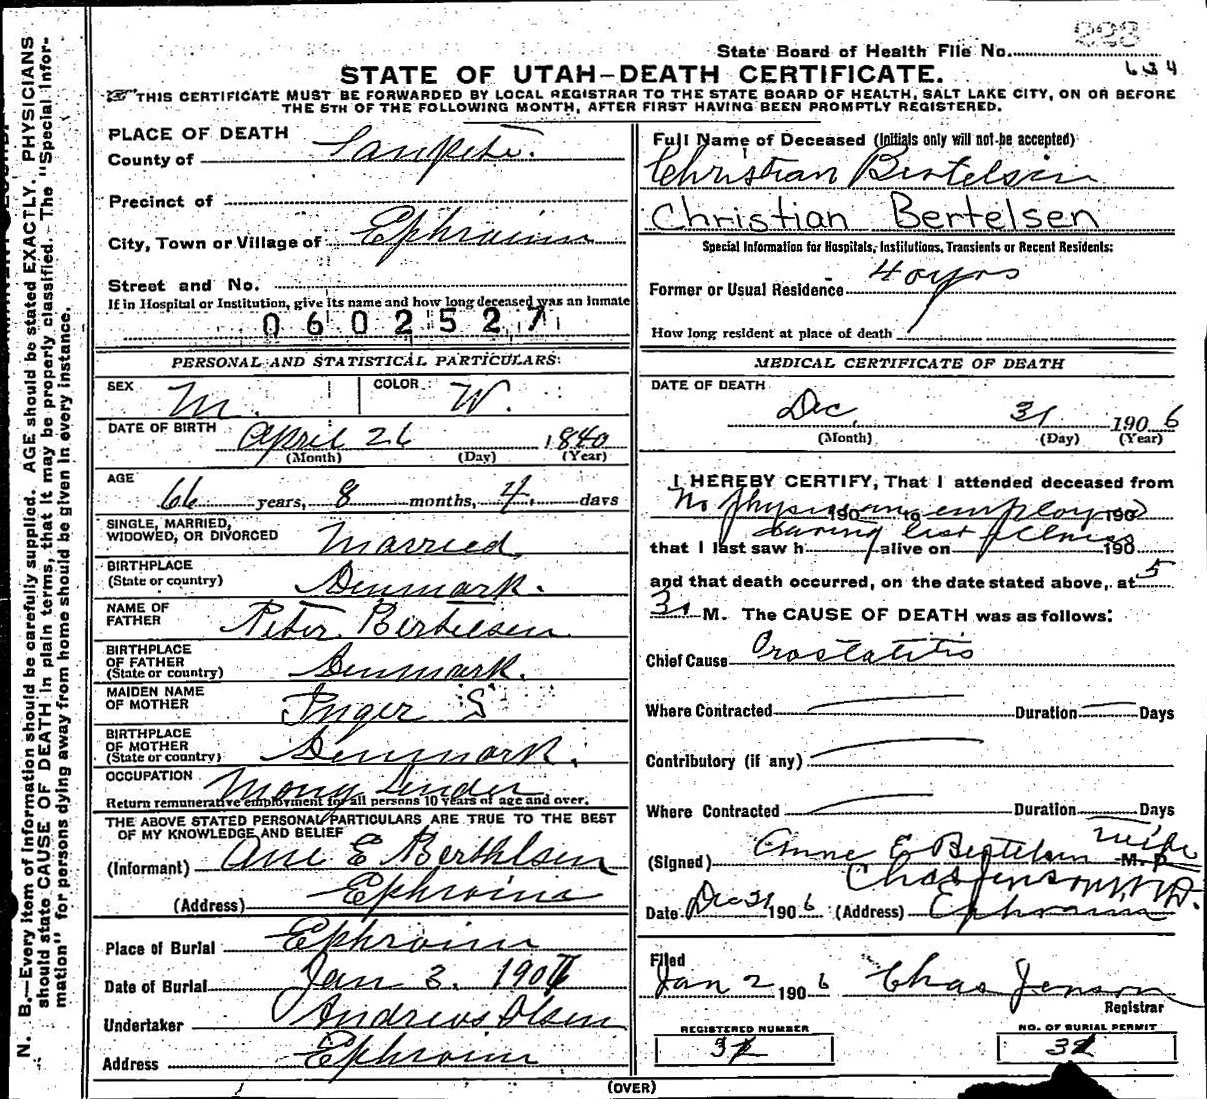 State Board of Health File No. 223
634
STATE OF UTAH—DEATH CERTIFICATE.
THIS CERTIFICATE MUST BE FORWARDED BY LOCAL REGISTRAR TO THE STATE BOARD OF HEALTH, SALT LAKE CITY, ON OR BEFORE
THE 5TH OF THE FOLLOWING MONTH, AFTER FIRST HAVING BEEN PROMPTLY REGISTERED.
N. B.—Every item of information should be carefully supplied. AGE should be stated EXACTLY. PHYSICIANS
should state CAUSE OF DEATH in plain terms, that it may be properly classified. The "Special Infor-
mation" for persons dying away from home should be given in every instance.
PLACE OF DEATH
County of Sanpete.
Precinct of
City, Town or Village of Ephraim
Street and No.
If in Hospital or Institution, give its name and how long deceased was an inmate
0602527
PERSONAL AND STATISTICAL PARTICULARS:
SEX M. COLOR: W.
DATE OF BIRTH April 26 1840
(Month) (Day) (Year)
AGE 66 years, 8 months, 4 days
SINGLE, MARRIED,
WIDOWED, OR DIVORCED Married
BIRTHPLACE
(State or country) Denmark.
NAME OF
FATHER Peter Bertelsen
BIRTHPLACE
OF FATHER
(State or country) Denmark.
MAIDEN NAME
OF MOTHER Inger S
BIRTHPLACE
OF MOTHER
(State or country) Denmark.
OCCUPATION Mony Lender
Return remunerative employment for all persons 10 years of age and over.
THE ABOVE STATED PERSONAL PARTICULARS ARE TRUE TO THE BEST
OF MY KNOWLEDGE AND BELIEF
(Informant) Ane E Berthlsen
(Address) Ephraim
Place of Burial Ephraim
Date of Burial Jan 3. 1907
Undertaker Andrew Olsen
Address Ephraim
Full Name of Deceased (Initials only will not be accepted)
Christian Bertelsen
Christian Bertelsen
Special Information for Hospitals, Institutions, Transients or Recent Residents:
Former or Usual Residence 40 yrs
How long resident at place of death
MEDICAL CERTIFICATE OF DEATH
DATE OF DEATH
Dec. 31 1906
(Month) (Day) (Year)
I HEREBY CERTIFY, That I attended deceased from
No physician employed 190 to 190
during last illness
that I last saw h alive on 190
and that death occurred, on the date stated above, at 5
30 M. The CAUSE OF DEATH was as follows:
Chief Cause Prostatitis
Where Contracted Duration Days
Contributory (if any)
Where Contracted Duration Days
(Signed) Anne E Bertelsen wife M. D
Chas Jenson M.D.
Date Dec 31 1906 (Address) Ephraim
Filed
Jan 2 1906 Chas Jenson
Registrar
REGISTERED NUMBER NO. OF BURIAL PERMIT
(OVER)